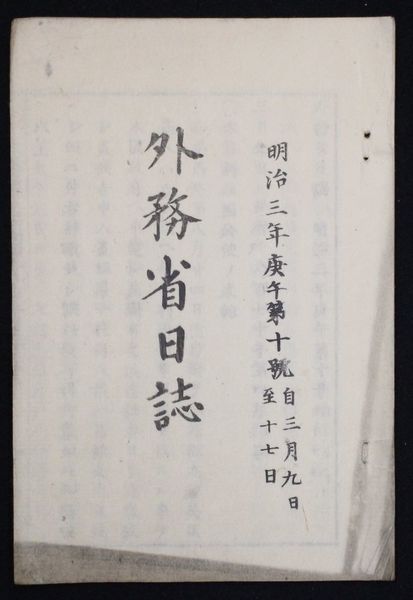 明治三年庚午第十號自三月九日至十七日
外務省日誌